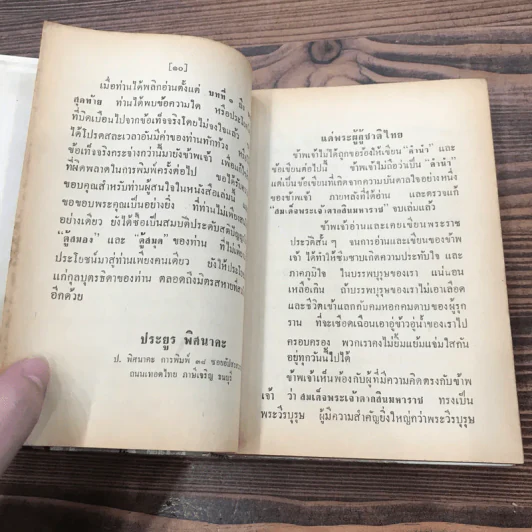 [๑๐]
เมื่อท่านได้พลิกอ่านตั้งแต่ บทที่ ๑ ถึง
สุดท้าย ท่านได้พบข้อความใด หรือประโยค
ที่บิดเบือนไปจากข้อเท็จจริงโดยไม่จงใจแล้ว
ได้โปรดสละเวลาอันมีค่าของท่านทักท้วง
ข้อเท็จจริงกระจ่างกว่านี้มายังข้าพเจ้า เพื่อแก้ไข
ที่ผิดพลาดในการพิมพ์ครั้งต่อไป ขอได้รับ
ขอบคุณสำหรับท่านผู้สนใจในหนังสือเล่มนี้
ขอขอบพระคุณเป็นอย่างยิ่ง ที่ท่านไม่เพียง
อย่างเดียว ยังได้ซื้อเป็นสมบัติประดับสติปัญญา
"ตู้สมอง" และ "ตู้สมุด" ของท่าน ที่ไม่เพียง
ประโยชน์มาสู่ท่านเพียงคนเดียว ยังให้ประโยชน์
แก่กุลบุตรธิดาของท่าน ตลอดถึงมิตรสหาย
อีกด้วย
ประยูร พิศนาคะ
ป. พิศนาคะ การพิมพ์ ๓๘
ถนนเทอดไทย ภาษีเจริญ ธนบุรี
แด่พระผู้กู้ชาติไทย
ข้าพเจ้าไม่ได้ถูกขอร้องให้เขียน "คำนำ" และ
ข้อเขียนต่อไปนี้ ข้าพเจ้าไม่ถือว่าเป็น "คำนำ"
แต่เป็นข้อเขียนที่เกิดจากความบันดาลใจอย่างหนึ่ง
ของข้าพเจ้า ภายหลังที่ได้อ่าน และตรวจแก้
"สมเด็จพระเจ้าตากสินมหาราช" จบเล่มแล้ว
ข้าพเจ้าอ่านและเคยเขียนพระราช
ประวัติสั้น ๆ จนการอ่านและเขียนของข้าพ
เจ้า ได้ทำให้ซึมซาบเกิดความประทับใจ และ
ภาคภูมิใจ ในบรรพบุรุษของเรา แน่นอน
เหลือเกิน ถ้าบรรพบุรุษของเราไม่เอาเลือด
และชีวิตเข้าแลกกับคมหอกคมดาบของผู้รุก
ราน ที่จะเชือดเฉือนเอาอู่ข้าวอู่น้ำของเราไป
ครอบครอง พวกเราคงไม่ยิ้มแย้มแช่มใสกัน
อยู่ทุกวันนี้ไปได้
ข้าพเจ้าเห็นพ้องกับผู้ที่มีความคิดตรงกับข้าพ
เจ้า ว่า สมเด็จพระเจ้าตากสินมหาราช ทรงเป็น
พระวีรบุรุษ ผู้มีความสำคัญยิ่งใหญ่กว่าพระวีรบุรุษ